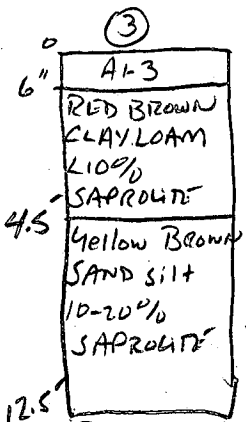 3
0
A1-3
6"
RED BROWN
CLAY LOAM
L10%
SAPROLITE
4.5'
Yellow BROWN
SAND silt
10-20%
SAPROLITE
12.5'